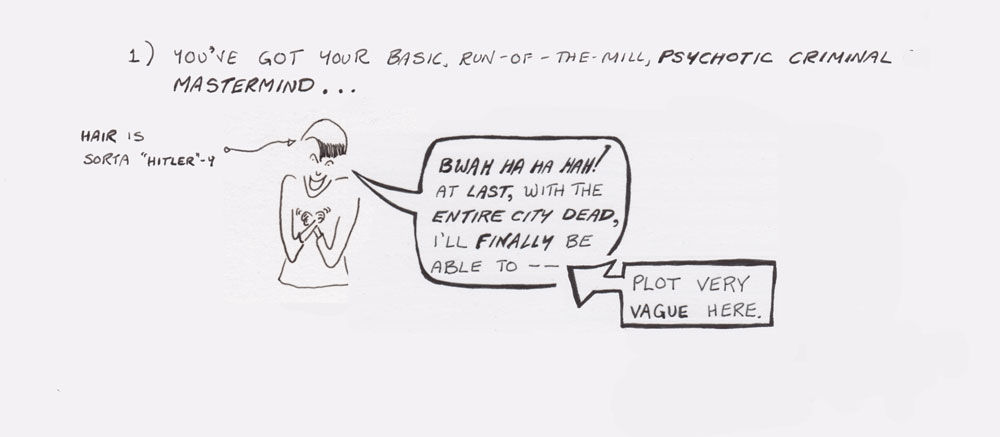 1) YOU'VE GOT YOUR BASIC, RUN-OF-THE-MILL, PSYCHOTIC CRIMINAL
MASTERMIND...
HAIR IS
SORTA "HITLER"-Y
BWAH HA HA HAH!
AT LAST, WITH THE
ENTIRE CITY DEAD,
I'LL FINALLY BE
ABLE TO --
PLOT VERY
VAGUE HERE.